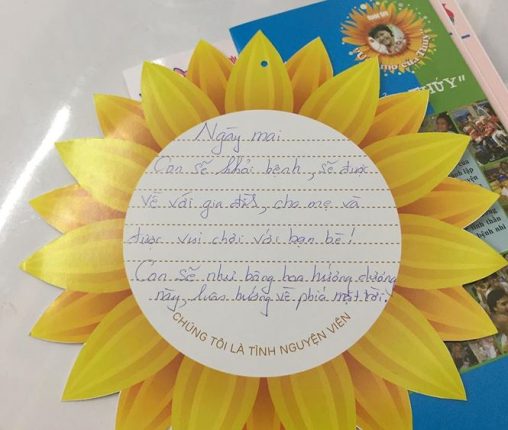 Ngày mai
Con sẽ khỏi bệnh, sẽ được
về với gia đình, cha mẹ và
được vui chơi với bạn bè!
Con sẽ như bông hoa hướng dương
này, luôn hướng về phía mặt trời!
CHÚNG TÔI LÀ TÌNH NGUYỆN VIÊN
THÚY"